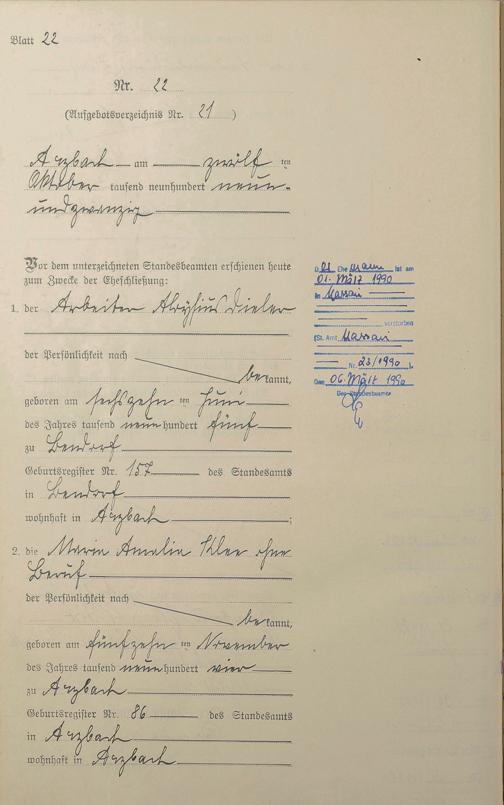 Blatt 22
Nr. 22
(Aufgebotsverzeichnis Nr. 21)
Arzbach am zwölf ten
Oktober tausend neunhundert neun-
undzwanzig
Vor dem unterzeichneten Standesbeamten erschienen heute
zum Zwecke der Eheschließung:
1. der Arbeiter Aloysius Dieler
der Persönlichkeit nach
bekannt,
geboren am sechszehn ten Juni
des Jahres tausend neunhundert fünf
zu Bendorf
Geburtsregister Nr. 157 des Standesamts
in Bendorf
wohnhaft in Arzbach;
2. die Maria Amalia Klee ohne
Beruf
der Persönlichkeit nach
bekannt,
geboren am fünfzehn ten November
des Jahres tausend neunhundert vier
zu Arzbach
Geburtsregister Nr. 86 des Standesamts
in Arzbach
wohnhaft in Arzbach
D Ehemann ist am
01. März 1990
in Nassau
verstorben
(St. Amt Nassau
Nr. 23/1990).
Den 06. März 1990
Der Standesbeamte